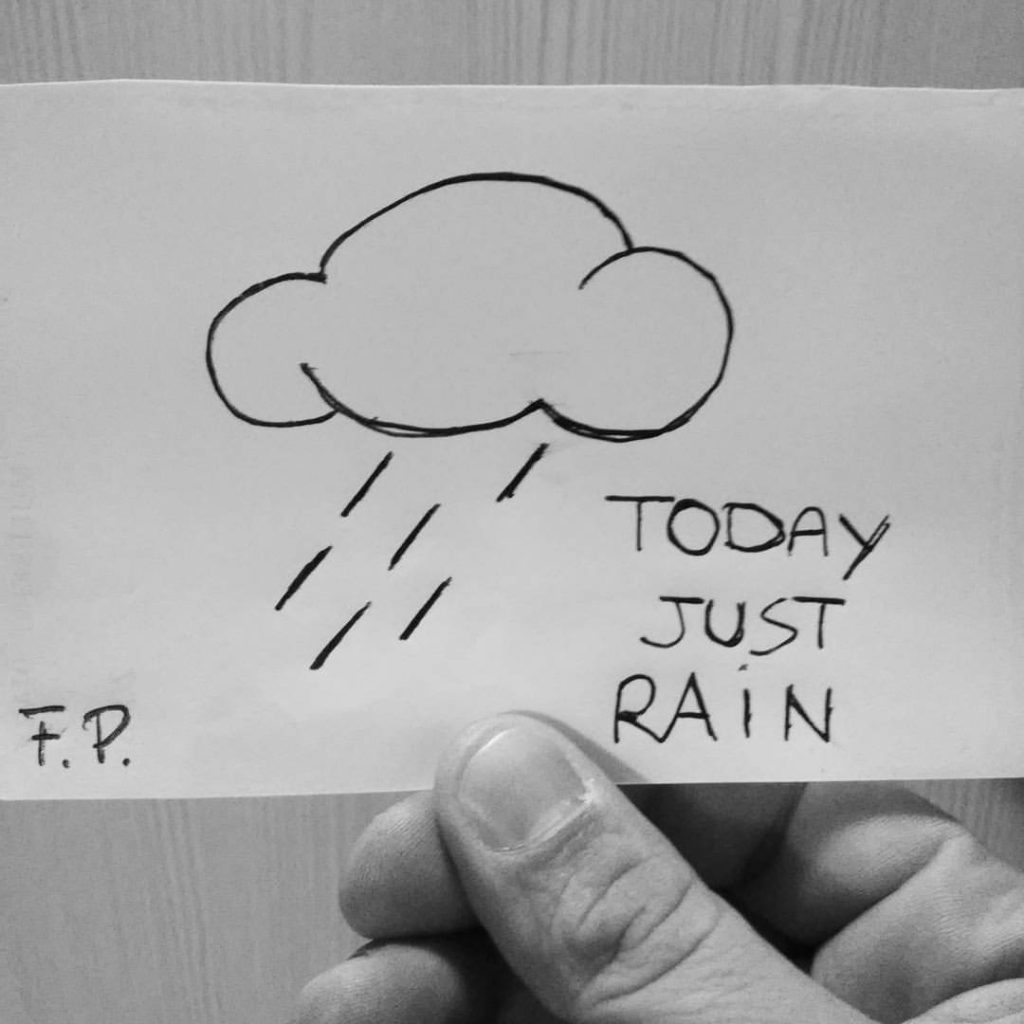 TODAY
JUST
RAiN
F.P.